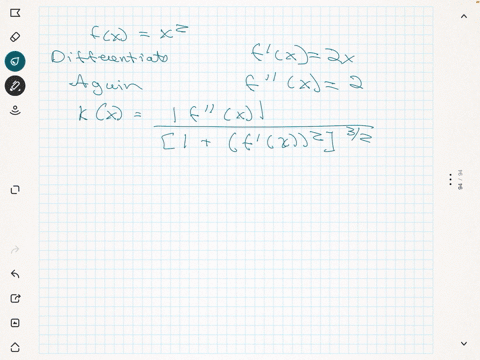 f(x) = x²
Differentiate f'(x) = 2x
Again f''(x) = 2
K(x) = |f''(x)| / [1 + (f'(x))²]^3/2